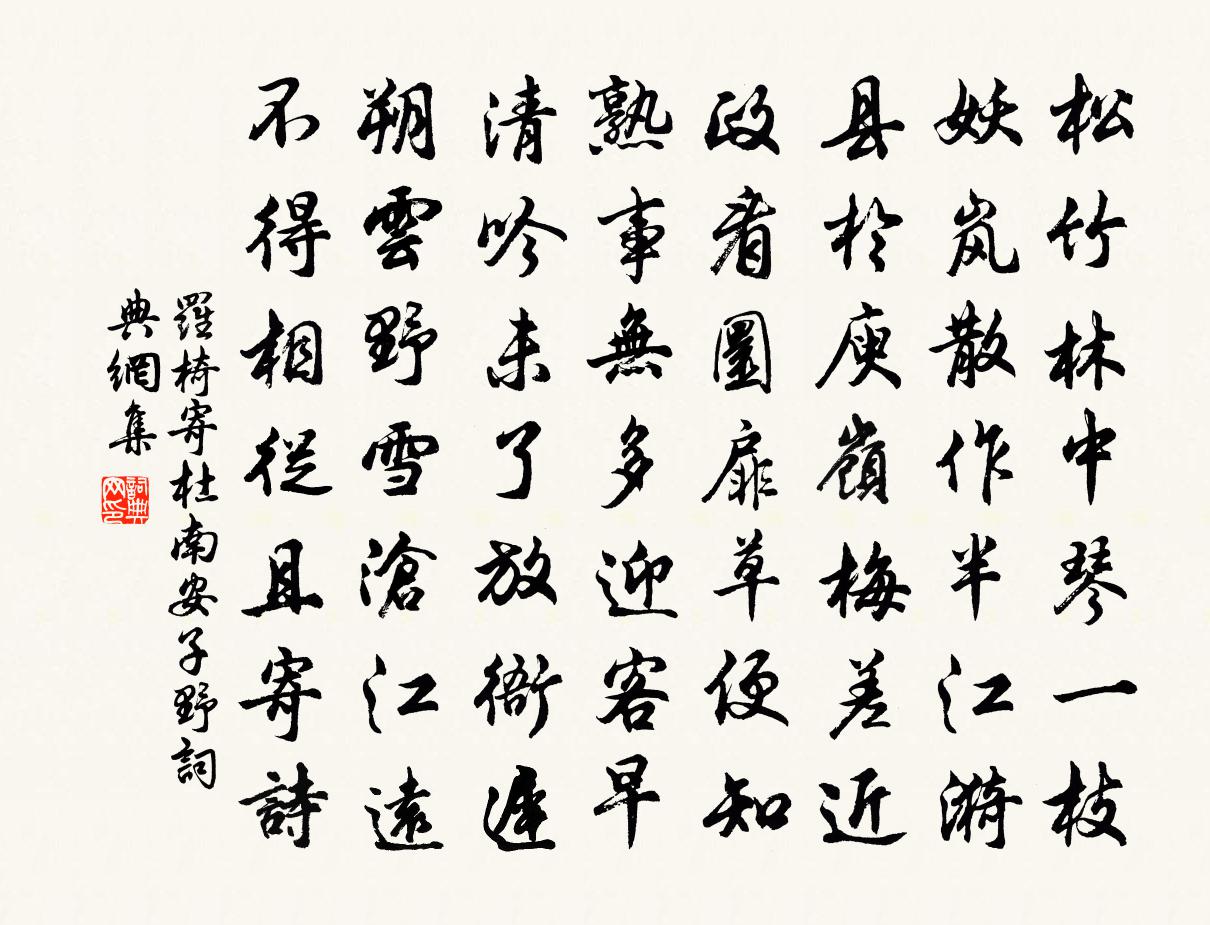 松竹林中琴一枝
妖岚散作半江漪
县於庾嶺梅差近
政看圜扉草便知
熟事無多迎客早
清吟未了放衙遲
朔雲野雪滄江遠
不得相從且寄詩
羅椅寄杜南安子野詞
典網集
詞典
网印